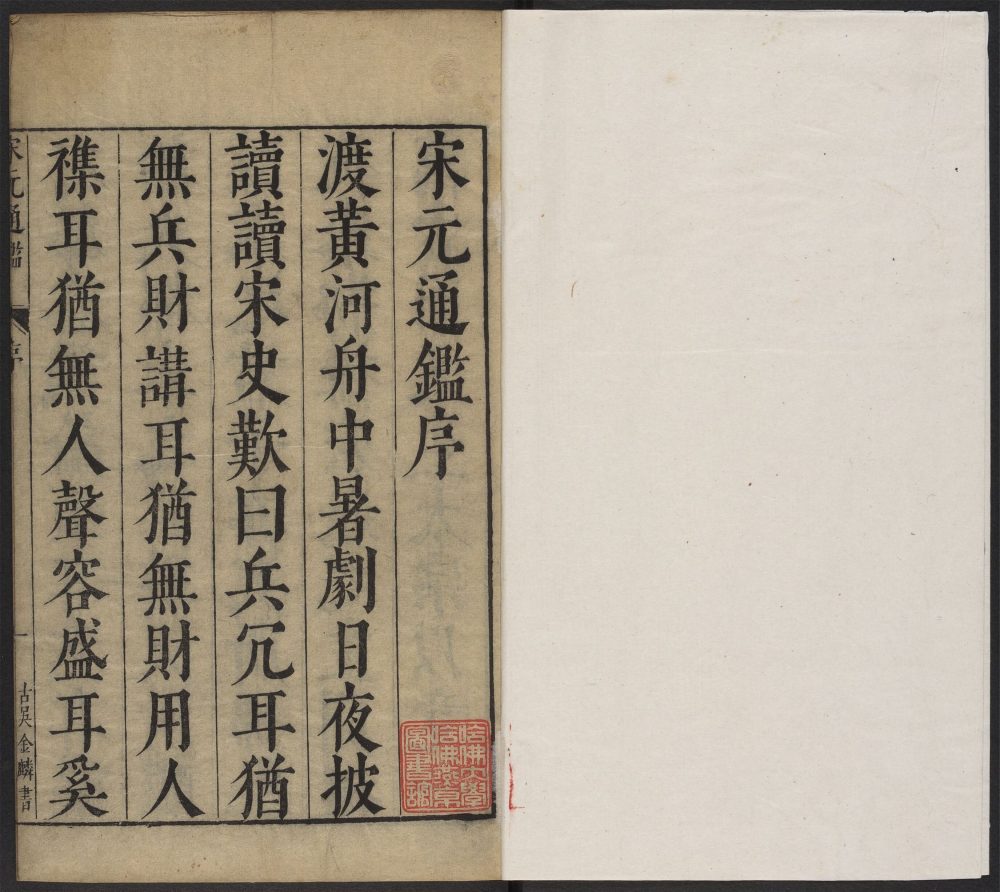 宋元通鑑序
渡黃河舟中暑劇日夜披
讀讀宋史歎曰兵冗耳猶
無兵財講耳猶無財用人
襍耳猶無人聲容盛耳奚
宋元通鑑
序
一
古吳金麟書
哈佛大學
哈佛燕京
圖書館